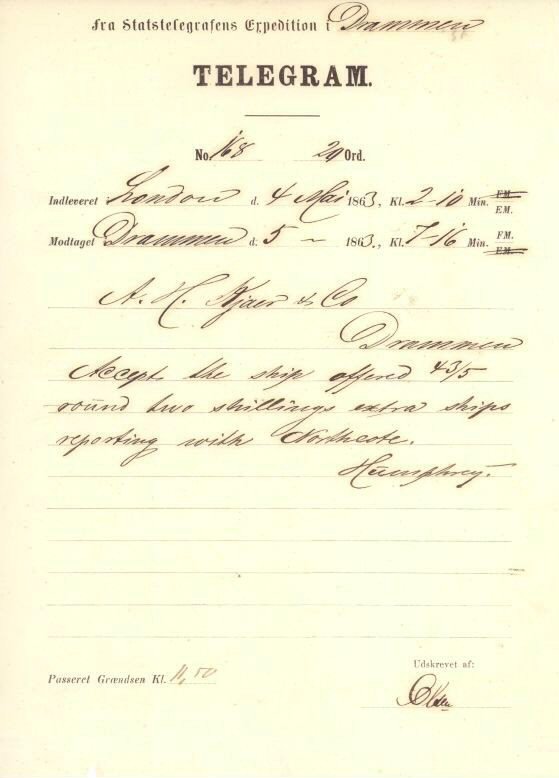 fra Statstelegrafens Expedition i Drammen
TELEGRAM.
No. 168 20 Ord.
Indleveret London d. 4 Mai 1863, Kl. 2-10 Min. FM. EM.
Modtaget Drammen d. 5 – 1863., Kl. 7-16 Min. FM. EM.
A. H. Kjaer & Co
Drammen
Accept the ship offered 43/5
round two shillings extra ships
reporting with Northcote.
Humphrey.
Passeret Grændsen Kl. 11,50
Udskrevet af: